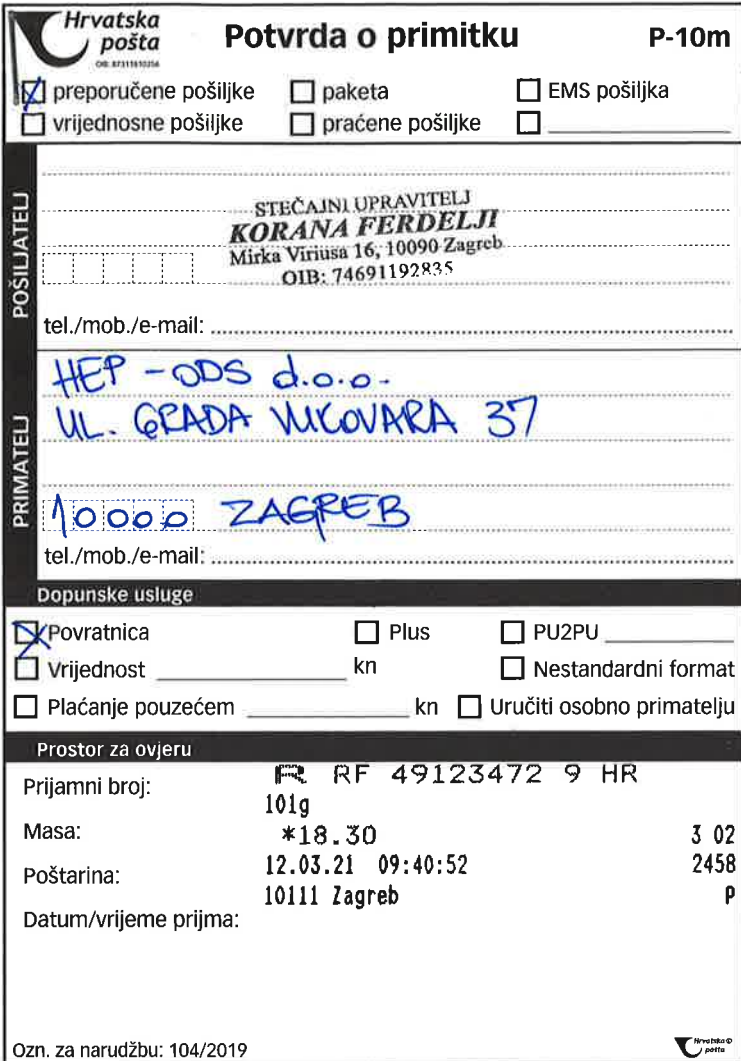 Hrvatska
pošta
OIB: 87311810356
Potvrda o primitku P-10m
preporučene pošiljke paketa EMS pošiljka
vrijednosne pošiljke praćene pošiljke
POŠILJATELJ
STEČAJNI UPRAVITELJ
KORANA FERDELJI
Mirka Viriusa 16, 10090 Zagreb
OIB: 74691192835
tel./mob./e-mail:
PRIMATELJ
HEP - ODS d.o.o.
UL. GRADA VUKOVARA 37
10000 ZAGREB
tel./mob./e-mail:
Dopunske usluge
Povratnica Plus PU2PU
Vrijednost kn Nestandardni format
Plaćanje pouzećem kn Uručiti osobno primatelju
Prostor za ovjeru
Prijamni broj: R RF 49123472 9 HR
101g
Masa: *18.30 3 02
Poštarina: 12.03.21 09:40:52 2458
10111 Zagreb P
Datum/vrijeme prijma:
Ozn. za narudžbu: 104/2019
Hrvatska
pošta